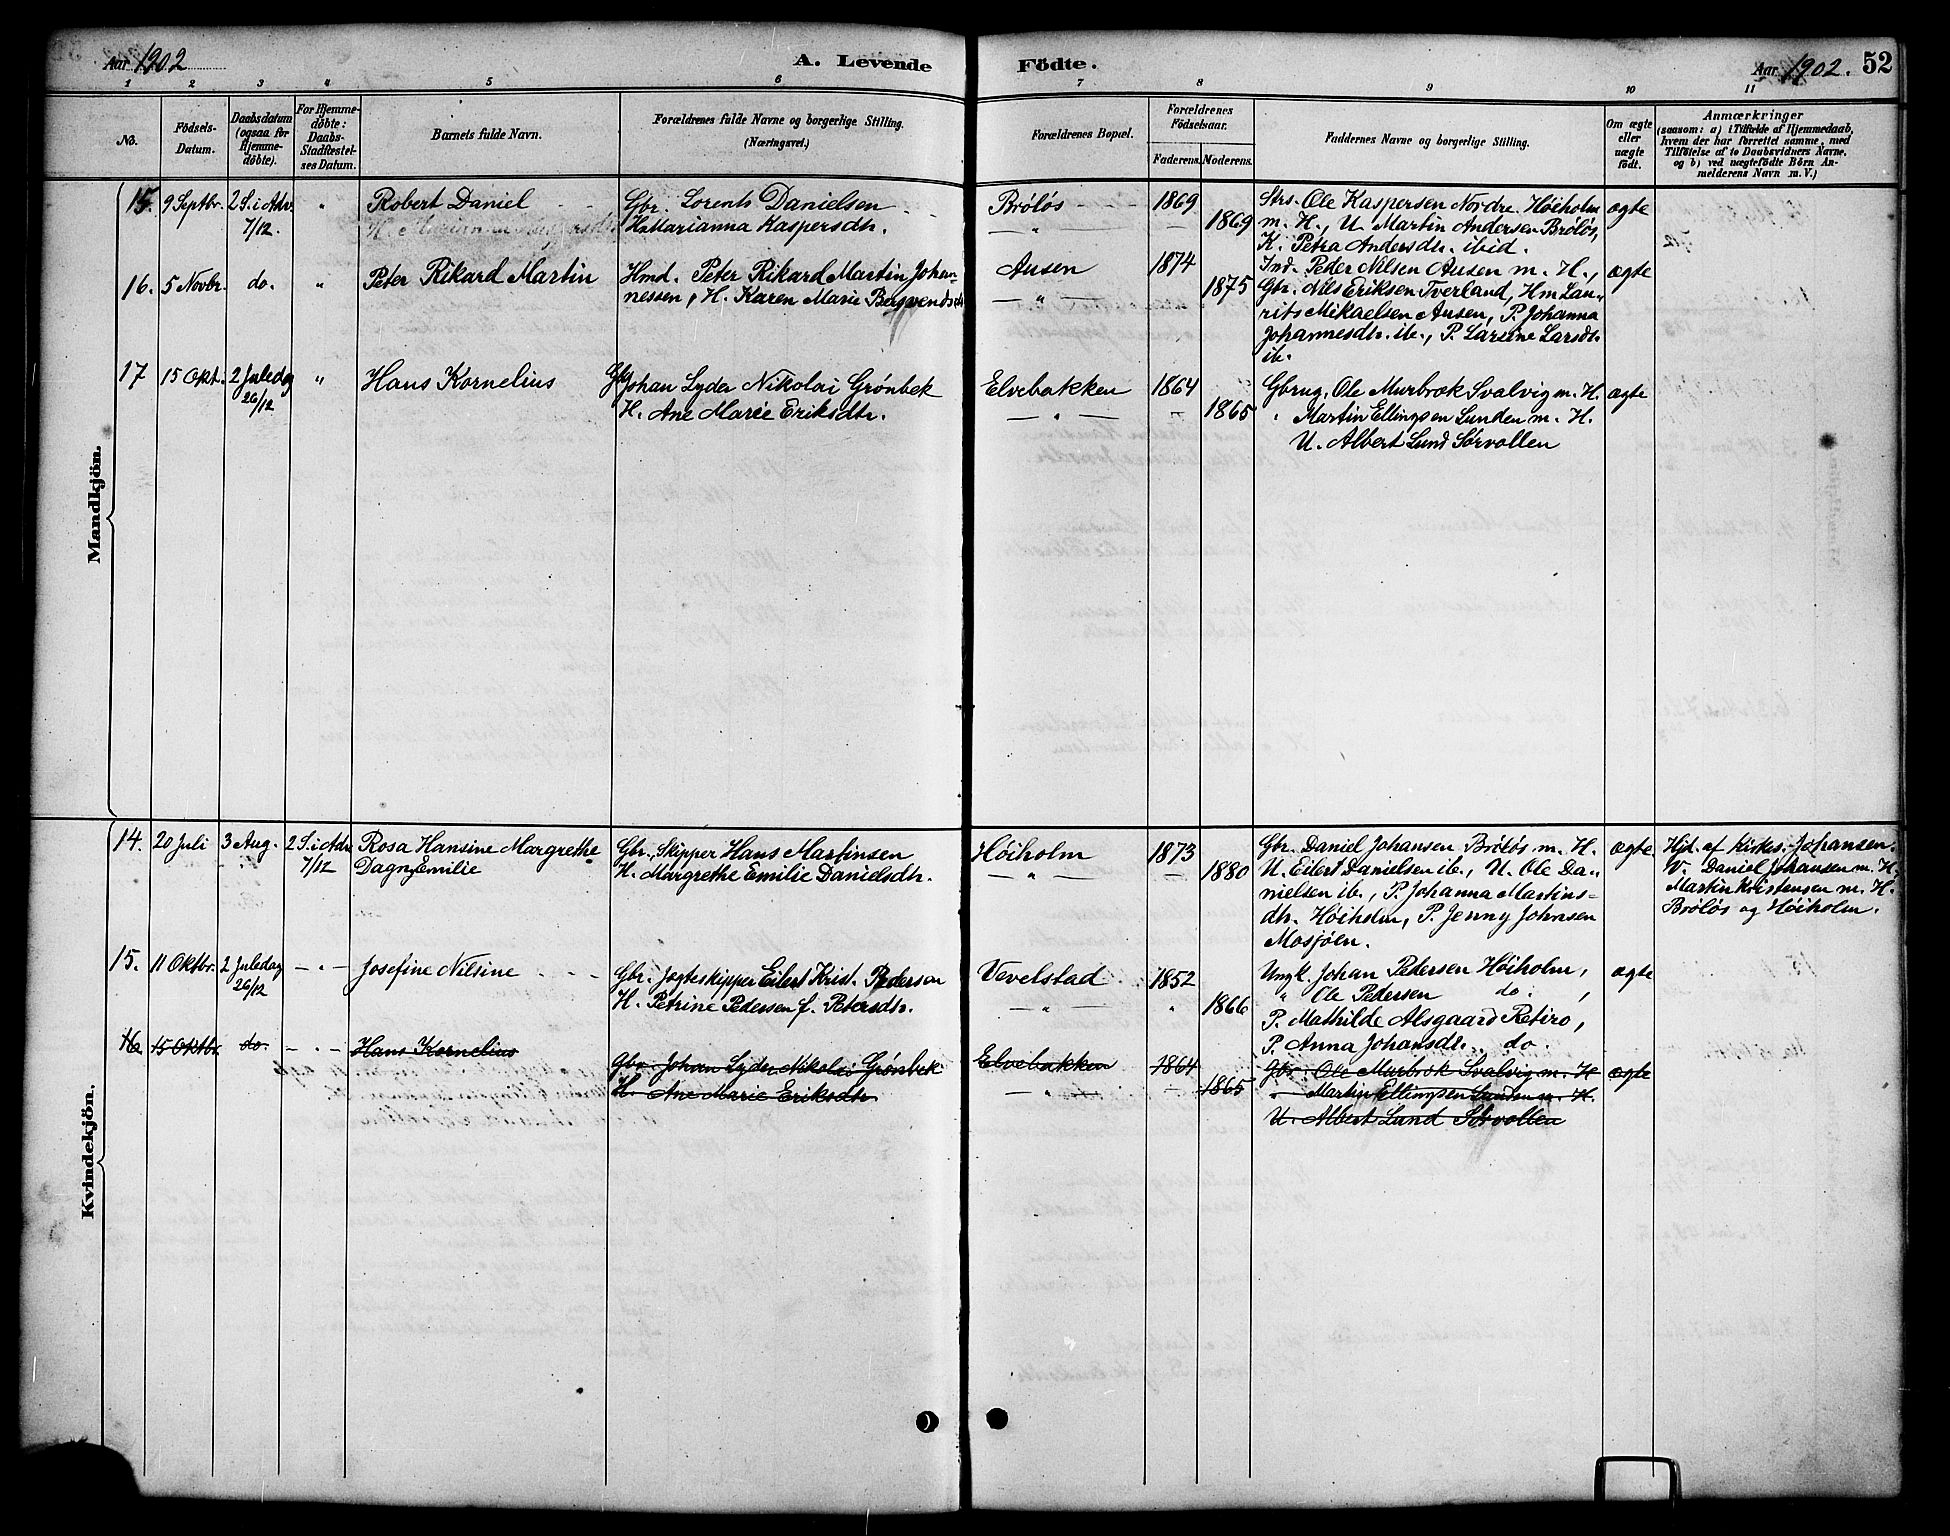 Aar 1902 A. Levende Födte. Aar 1902. 52
1 2 3 4 5 6 7 8 9 10 11
No.
Födsels-Datum.
Daabsdatum (ogsaa for Hjemme-döbte).
For Hjemme-döbte: Daabs-Stadfæstel-ses Datum.
Barnets fulde Navn.
Forældrenes fulde Navne og borgerlige Stilling. (Næringsvei.)
Forældrenes Bopæl.
Forældrenes Födselsaar.
Faderens. Moderens.
Faddernes Navne og borgerlige Stilling.
Om ægte eller uægte födt.
Anmærkringer
(saasom: a) i Tilfælde af Hjemmedaab, hvem der har forrettet samme, med Tilföielse af to Daabsvidners Navne, og b) ved uægtefödte Börn An-melderens Navn m. V.)
Mandkjön.
15. 9 Septbr. 2 S. i Adv. 7/12. " Robert Daniel
Gbr. Lorents Danielsen
H. Marianna Kaspersdtr.
Brøløs 1869
— " — 1869
Strs. Ole Kaspersen Nordre Høiholm
m. H., U. Martin Andersen Brøløs,
K. Petra Andersdtr. ibid.
ægte
16. 5 Novbr. do. " Peter Rikard Martin
Hmd. Peter Rikard Martin Johan-
nessen, H. Karen Marie Bergsvendsdtr
Ausen 1874
— " — 1875
Ind. Peder Nilsen Ausen m. H.,
Gbr. Nils Eriksen Tverland, Hm Lau-
rits Mikaelsen Ausen, P. Johanna
Johannesdtr. ib., P. Larsine Larsdtr.
ib.
ægte
17 15 Okt. 2 Juledag 26/12 " Hans Kornelius
Gbr Johan Lyder Nikolai Grønbek
H. Ane Marie Eriksdtr.
Elvebakken 1864
— " — 1865
Gbrug. Ole Murbrok Svalvig m. H.
" Martin Ellingsen Lunden m. H.
U. Albert Lund Sørvollen
ægte
Kvindekjön.
14. 20 Juli 3 Aug. 2 S. i Adv. 7/12 Rosa Hansine Margrethe
Dagny Emilie
Gbr., Skipper Hans Martinsen
H. Margrethe Emilie Danielsdtr.
Høiholm 1873
— " — 1880
Gbr. Daniel Johansen Brøløs m. H.
U. Eilert Danielsen ib., U. Ole Da-
nielsen ib., P. Johanna Martins-
dtr. Høiholm, P. Jenny Johnsen
Mosjøen.
ægte.
Hjd. af Kirkes. Johansen.
V. Daniel Johansen m. H.
Martin Kristensen m. H.
Brøløs og Høiholm.
15. 11 Oktbr. 2 Juledag 26/12 — " — Josefine Nilsine
Gbr. Jægteskipper Eilert Krist. Pedersen
H. Petrine Pedersen f. Petersdtr.
Vevelstad 1852
— " — 1866
Ungk. Johan Petersen Høiholm,
" Ole Pedersen do.,
P. Mathilde Alsgaard Retiro,
P. Anna Johansdtr. do.
ægte
16. 15 Oktbr. do. — " — Hans Kornelius
Gbr. Johan Lyder Nikolai Grønbek
H. Ane Marie Eriksdtr
Elvebakken 1864
— " — 1865
Gbr. Ole Murbrok Svalvig m. H
" Martin Ellingsen Lunden m. H.
U. Albert Lund Sørvollen
ægte